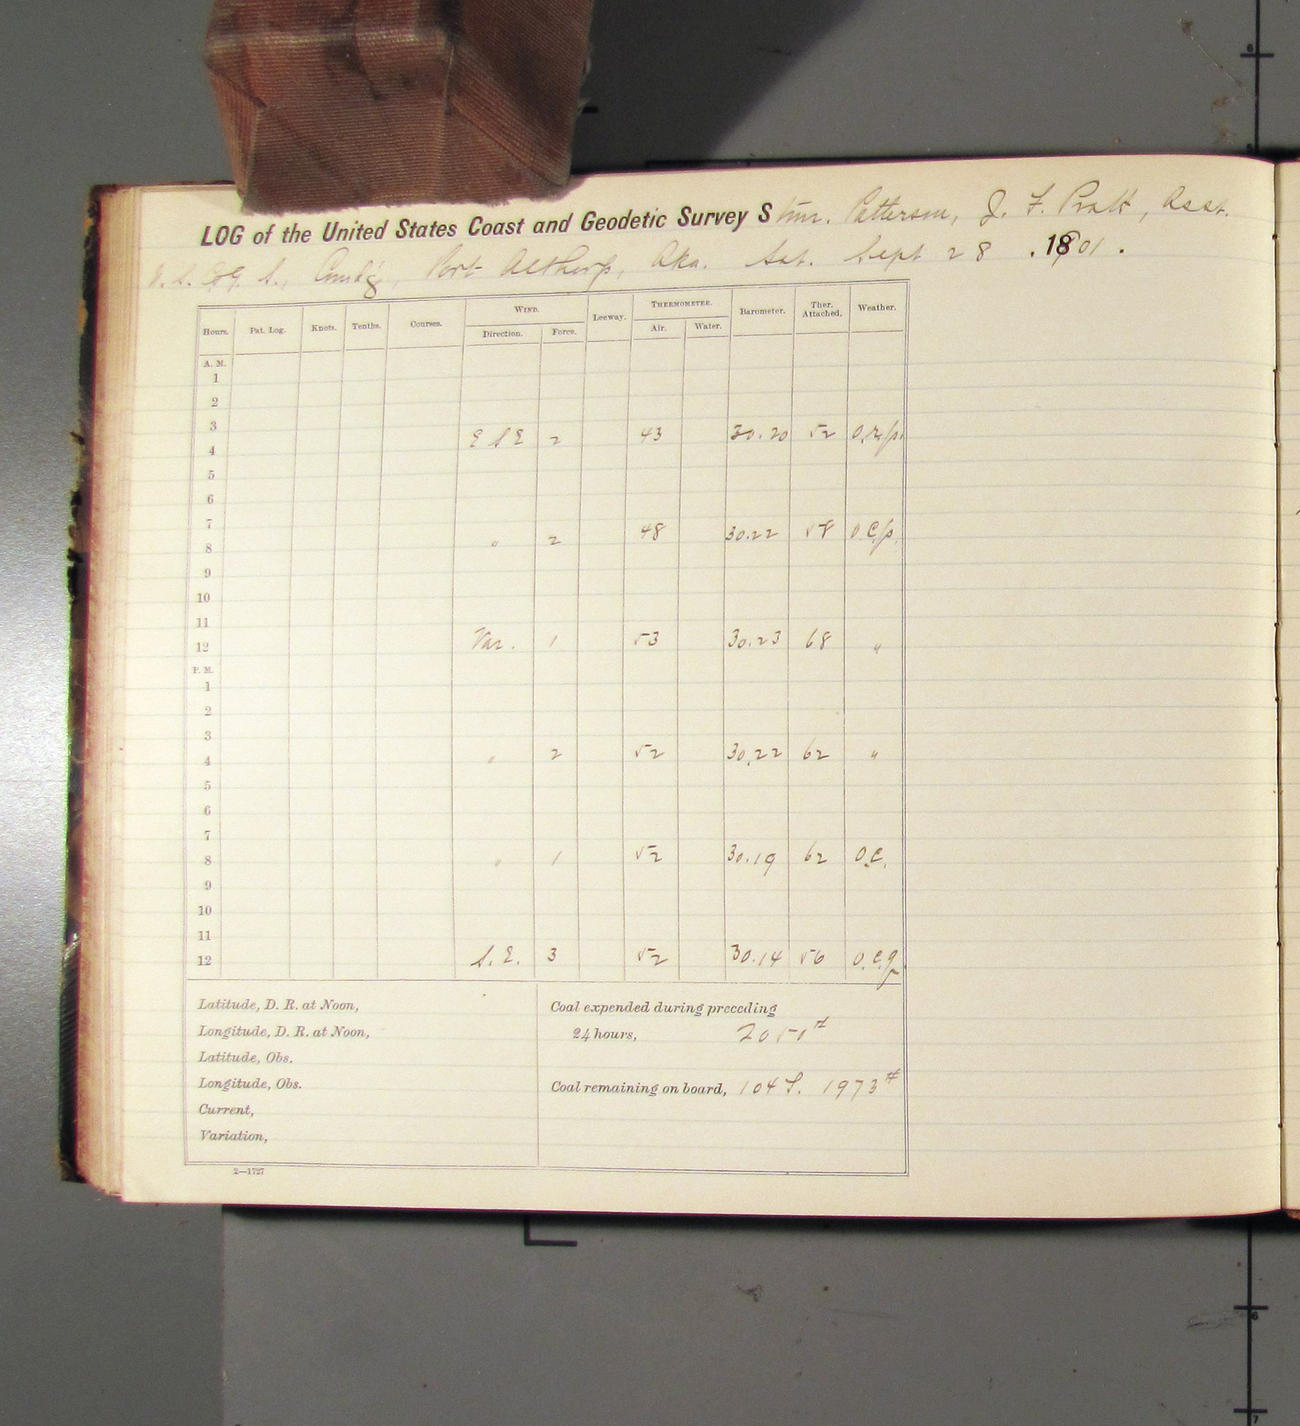 LOG of the United States Coast and Geodetic Survey Stmr. Patterson, J. F. Pratt, Asst.
U. S. C.&G. S., Comdg, Port Althorp, Aka. Sat. Sept 28 . 1901 .
Hours. Pat. Log. Knots. Tenths. Courses. WIND. Leeway. THERMOMETER. Barometer. Ther. Attached. Weather.
Direction. Force. Air. Water.
A. M.
1
2
3
4 E S E 2 43 30.20 52 O.r.p.
5
6
7
8 " 2 48 30.22 58 O.C.p.
9
10
11
12 Var. 1 53 30.23 68 "
P. M.
1
2
3
4 " 2 52 30.22 62 "
5
6
7
8 " 1 52 30.19 62 O.C.
9
10
11
12 S. E. 3 52 30.14 56 O.C.q.
Latitude, D. R. at Noon,
Longitude, D. R. at Noon,
Latitude, Obs.
Longitude, Obs.
Current,
Variation,
Coal expended during preceding
24 hours, 2050#
Coal remaining on board, 104 T. 1973#
2—1727
6
6
7